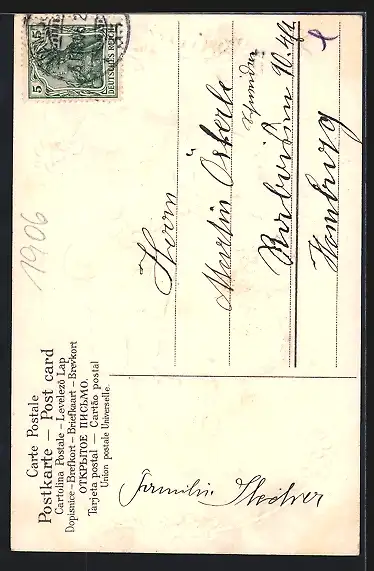 Carte Postale
Postkarte – Post card
Cartolina Postale – Levelező Lap
Dopisnice – Brefkort – Briefkaart – Brevkort
ОТКРЫТОЕ ПИСЬМО.
Tarjeta postal – Cartão postal
Union postale Universelle.
1906
5 5
DEUTSCHES REICH
Herrn
Martin Österle
Hamburg
Familie